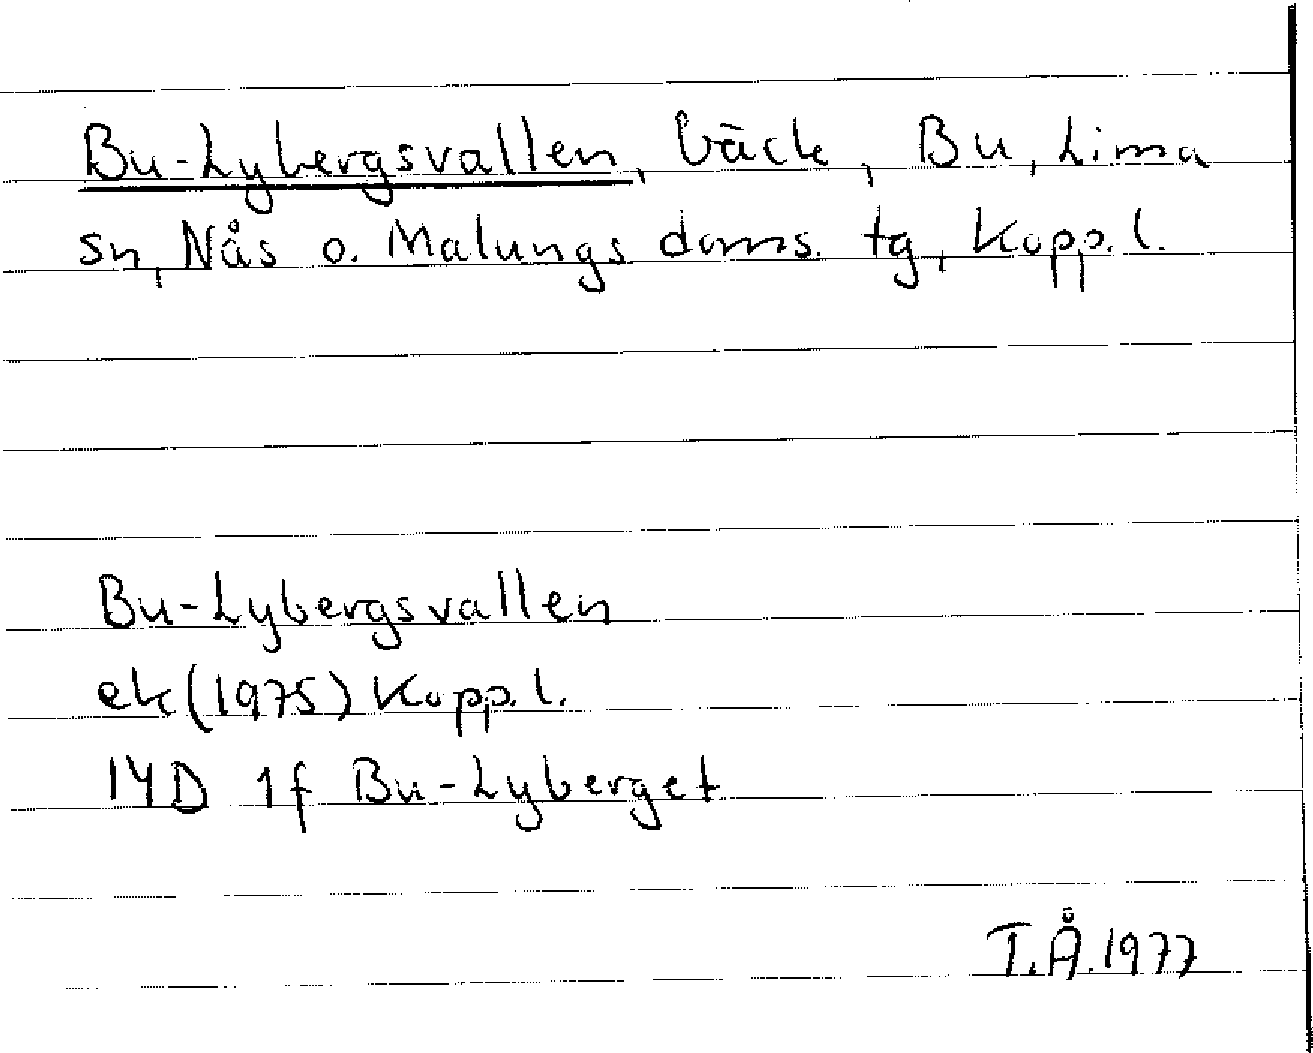 Bu-Lybergsvallen, bäck, Bu, Lima
sn, Nås o. Malungs doms. tg, Kopp. l.
Bu-Lybergsvallen
ek (1975) Kopp. l.
14D 1f Bu-Lyberget
T.Å. 1977